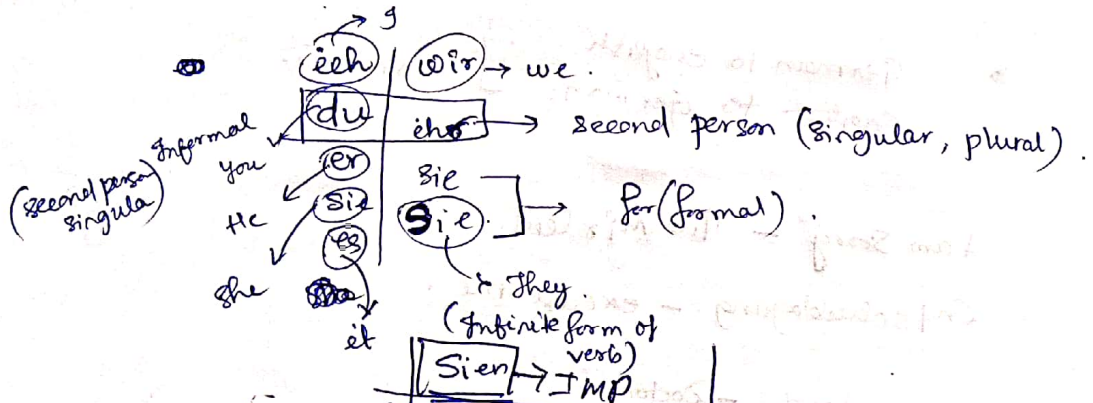 I
ich wir → we.
du ihr → second person (singular, plural).
Informal
you
(second person
singula)
er
He
sie
sie
Sie
for (formal).
es
she
it
They.
(Infinite form of
verb)
Sien → IMP